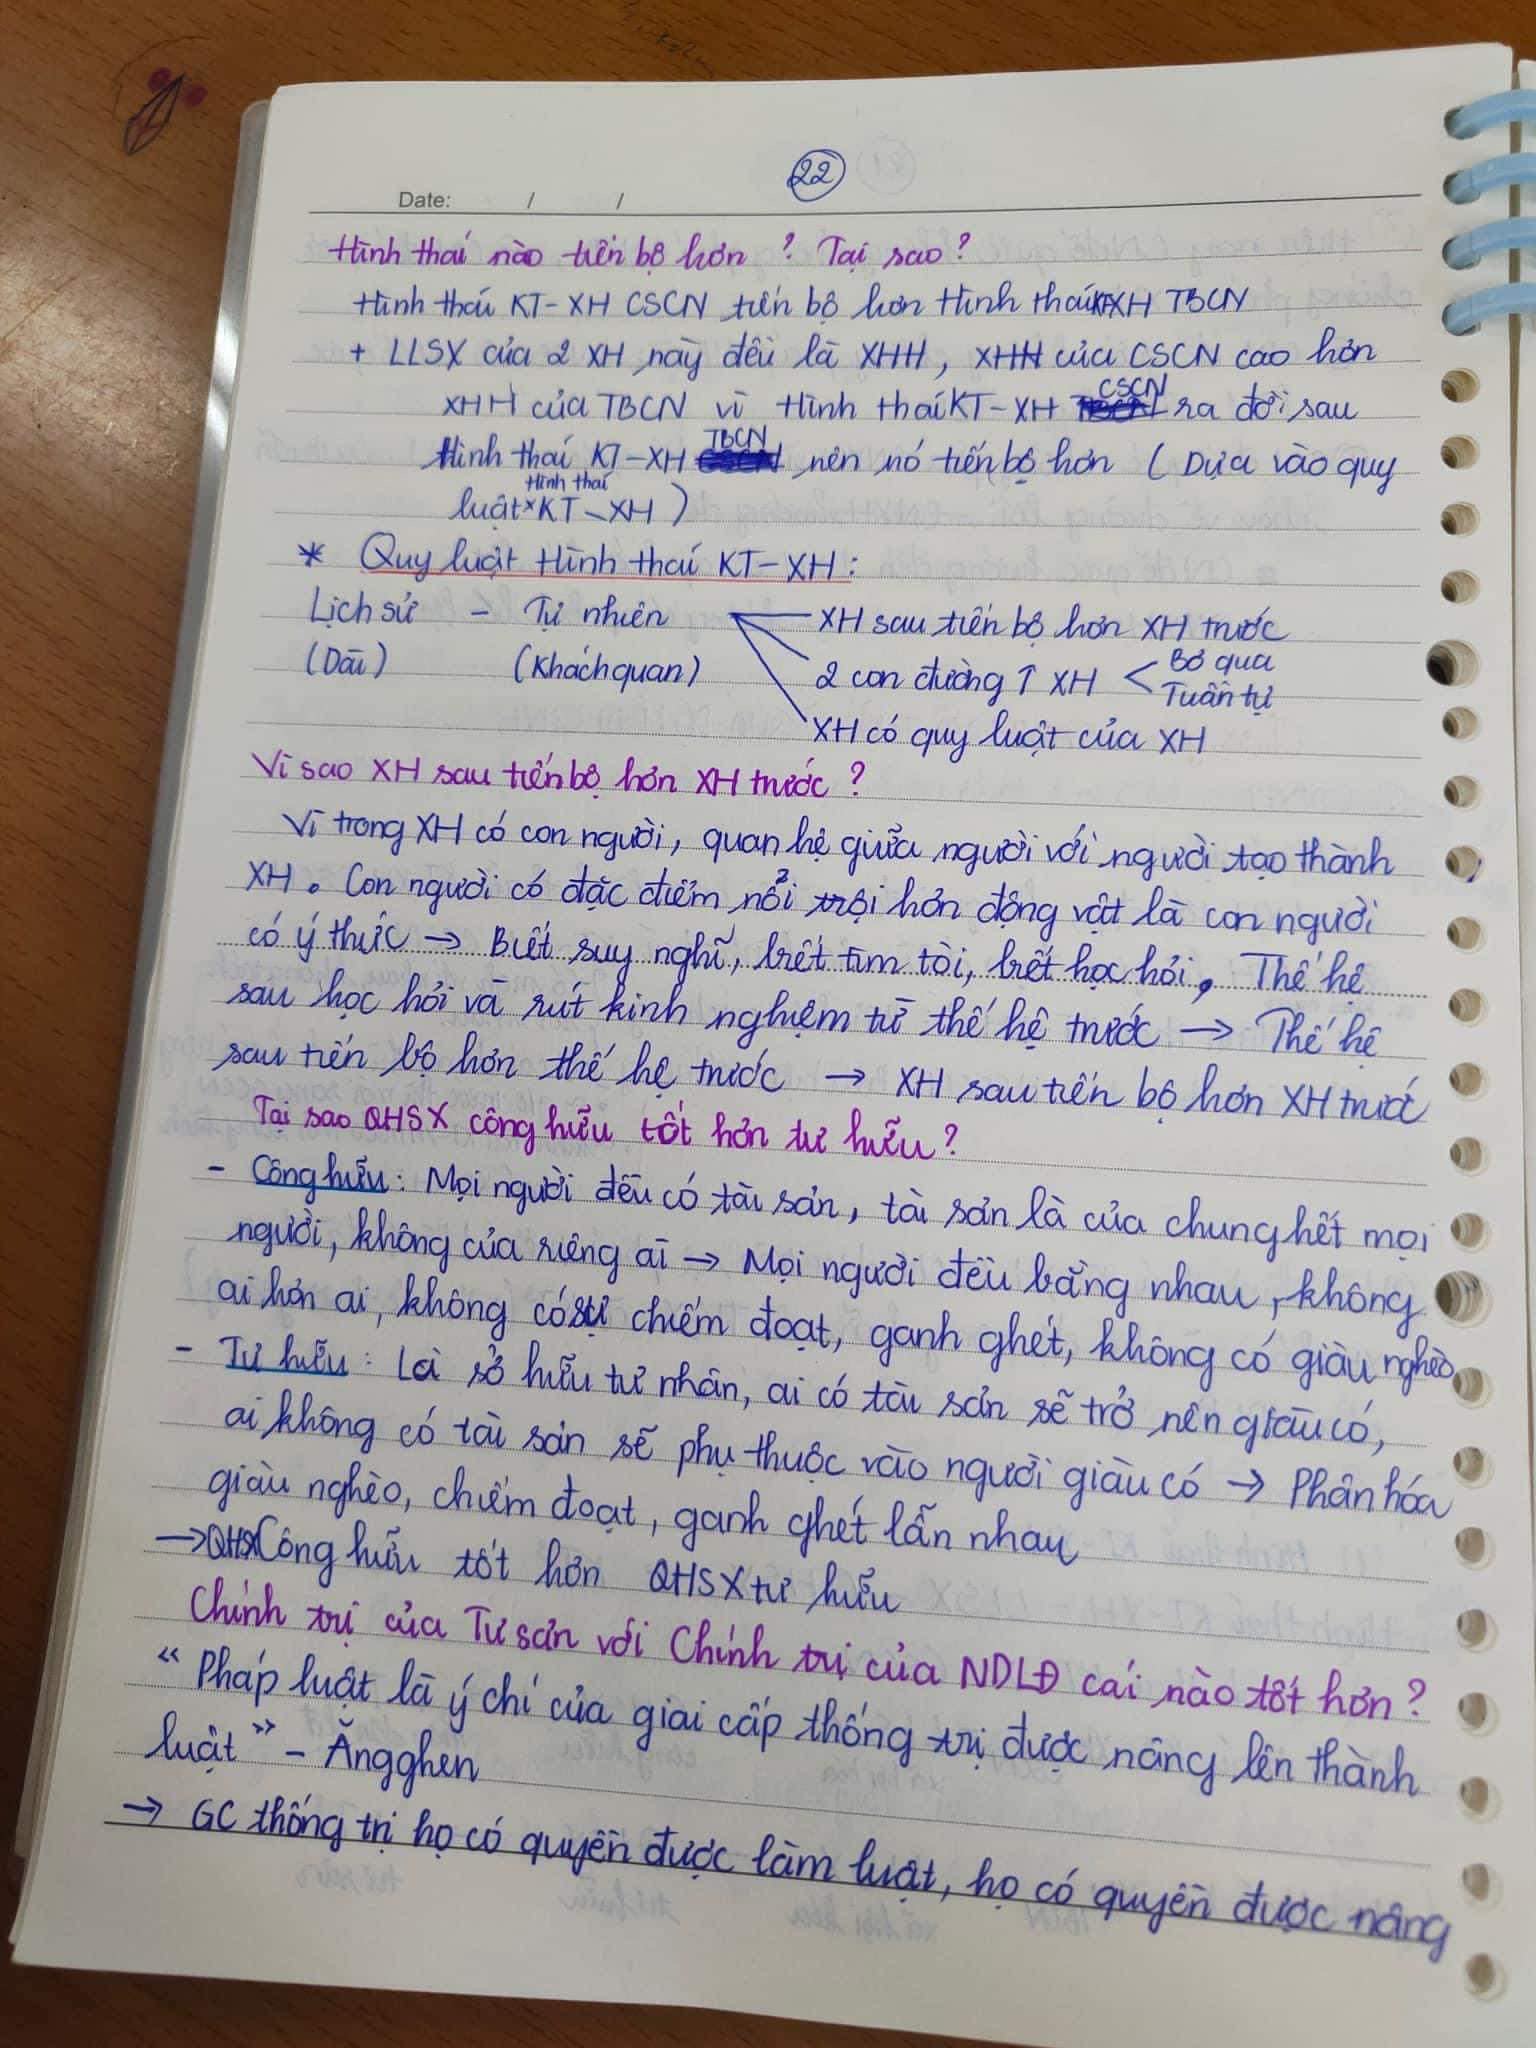 22
Date: / /
Hình thái nào tiến bộ hơn ? Tại sao ?
Hình thái KT-XH CSCN tiến bộ hơn Hình thái KTXH TBCN
+ LLSX của 2 XH này đều là XHH, XHH của CSCN cao hơn
XHH của TBCN vì Hình thái KT-XH CSCN ra đời sau
Hình thái KT-XH TBCN nên nó tiến bộ hơn ( Dựa vào quy
luật Hình thái KT-XH )
* Quy luật Hình thái KT-XH :
Lịch sử - Tự nhiên XH sau tiến bộ hơn XH trước
(Dài) (Khách quan) 2 con đường ↑ XH < Bỏ qua
Tuần tự
XH có quy luật của XH
Vì sao XH sau tiến bộ hơn XH trước ?
Vì trong XH có con người, quan hệ giữa người với người tạo thành
XH. Con người có đặc điểm nổi trội hơn động vật là con người
có ý thức → Biết suy nghĩ, biết tìm tòi, biết học hỏi, Thế hệ
sau học hỏi và rút kinh nghiệm từ thế hệ trước → Thế hệ
sau tiến bộ hơn thế hệ trước → XH sau tiến bộ hơn XH trước
Tại sao QHSX công hữu tốt hơn tư hữu ?
- Công hữu : Mọi người đều có tài sản, tài sản là của chung hết mọi
người, không của riêng ai → Mọi người đều bằng nhau, không
ai hơn ai, không có sự chiếm đoạt, ganh ghét, không có giàu nghèo
- Tư hữu : Là sở hữu tư nhân, ai có tài sản sẽ trở nên giàu có,
ai không có tài sản sẽ phụ thuộc vào người giàu có → Phân hóa
giàu nghèo, chiếm đoạt, ganh ghét lẫn nhau
→ QHSX Công hữu tốt hơn QHSX tư hữu
Chính trị của Tư sản với Chính trị của NDLĐ cái nào tốt hơn ?
“ Pháp luật là ý chí của giai cấp thống trị được nâng lên thành
luật ” - Ăngghen
→ GC thống trị họ có quyền được làm luật, họ có quyền được nâng